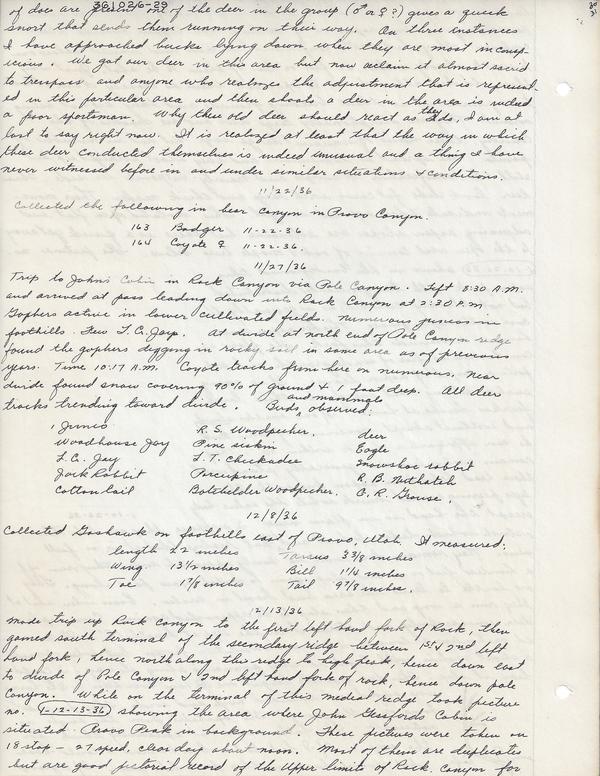 381036-39
of does are of the deer in the group (♂ or ♀?) gives a quick
snort that sends them running on their way. On three instances
I have approached bucks lying down when they are most inconsp-
icuous. We got our deer in this area but now acclaim it almost sacrid
to trespass and anyone who realizes the adjustment that is represent-
ed in this particular area and then shoots a deer in the area is indeed
a poor sportsman. Why these old deer should react as they do, I am at
lost to say right now. It is realized at least that the way in which
these deer conducted themselves is indeed unusual and a thing I have
never witnessed before in and under similar situations & conditions.
11/22/36
Collected the following in bear Canyon in Provo Canyon.
163 Badger 11-22-36
164 Coyote ♀ 11-22-36.
11/27/36
Trip to Johns Cabin in Rock Canyon via Pole Canyon. Left 8:30 A.M.
and arrived at pass leading down into Rock Canyon at 2:30 P.M
Gophers active in lower cultivated fields. Numerous juncos in
foothills. Few L.C. Jays. At divide at north end of Pole Canyon ridge
found the gophers digging in rocky soil in same area as of previous
years. Time 10:17 A.M. Coyote tracks from here on numerous. Near
divide found snow covering 90% of ground & 1 foot deep. All deer
tracks trending toward divide. Birds and mammals observed:
Junco R.S. Woodpecker. deer
Woodhouse Jay Pine siskin Eagle
L.C. Jay L.T. Chickadee Snowshoe rabbit
Jack Rabbit Porcupine R.B. Nuthatch
Cottontail Batchelder Woodpecker. C.R. Grouse.
12/8/36
Collected Goshawk on foothills east of Provo, Utah. It measured:
length 22 inches Tarsus 3 3/8 inches
Wing 13 1/2 inches Bill 1 1/4 inches
Toe 1 7/8 inches Tail 9 7/8 inches.
12/13/36
Made trip up Rock Canyon to the first left hand fork of Rock, then
gained south terminal of the secondary ridge between 1st & 2nd left
hand fork, hence north along the ridge to high peak, hence down east
to divide of Pole Canyon & 2nd left hand fork of rock, hence down pole
Canyon. While on the terminal of this medial ridge took picture
no. 1-12-13-36 showing the area where John Cabin is
situated. Provo Peak in background. These pictures were taken on
18 stop - 27 speed, clear day about noon. Most of them are duplicates
but are good pictorial record of the Upper limits of Rock Canyon for